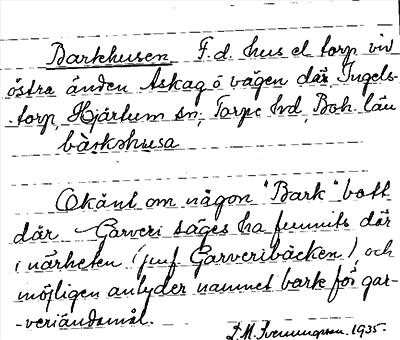 Barkhusen F.d. hus el torp vid
östra änden Askagövägen där, Ingels-
torp, Hjärtum sn, Torpe hd, Boh. län
bàrkhusa
Okänt om någon "Bark" bott
där. Garveri säges ha funnits där
i närheten (jmf Garveribäcken), och
möjligen antyder namnet bark för gar-
veriändamål.
1935.